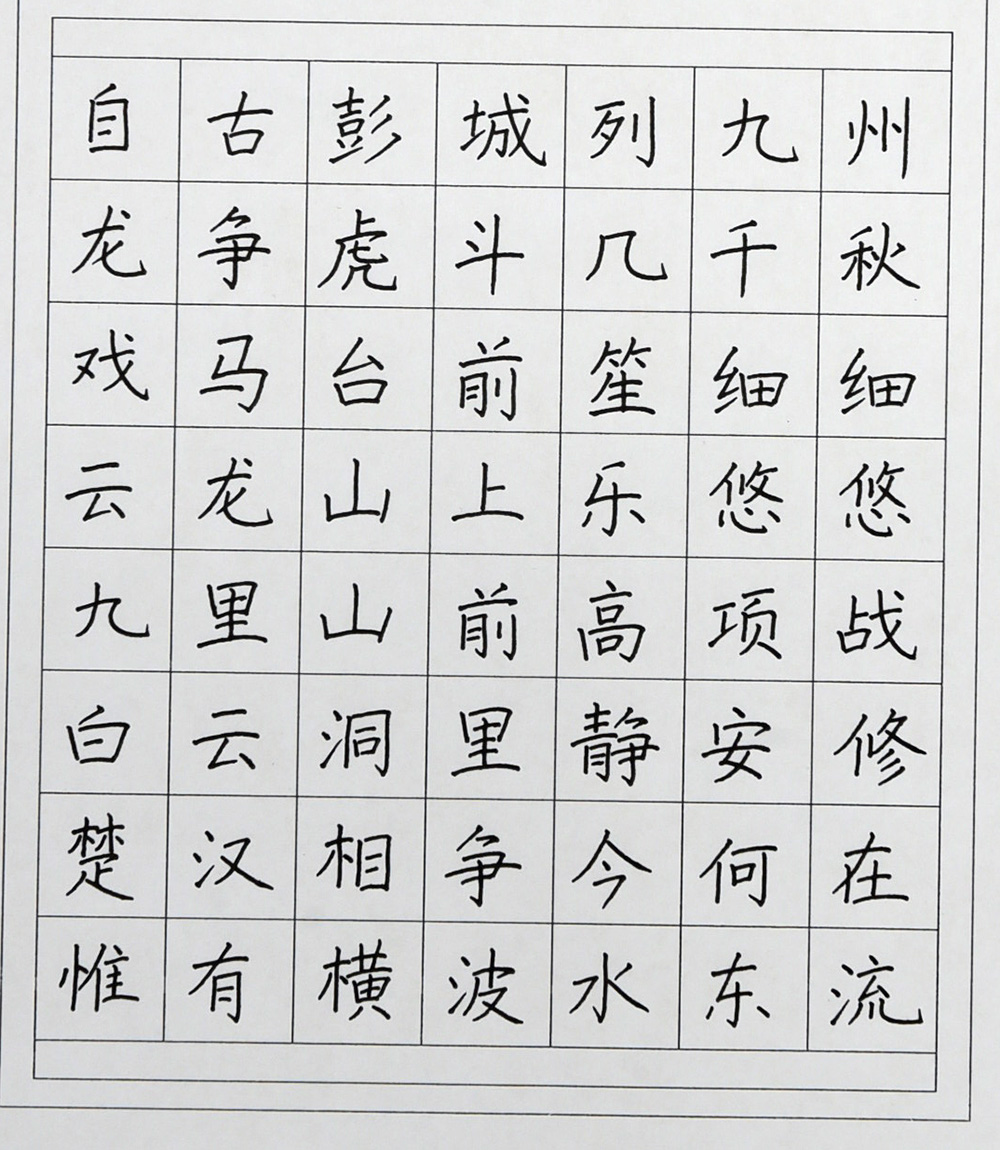 自古彭城列九州
龙争虎斗几千秋
戏马台前笙细细
云龙山上乐悠悠
九里山前高项战
白云洞里静安修
楚汉相争今何在
惟有横波水东流